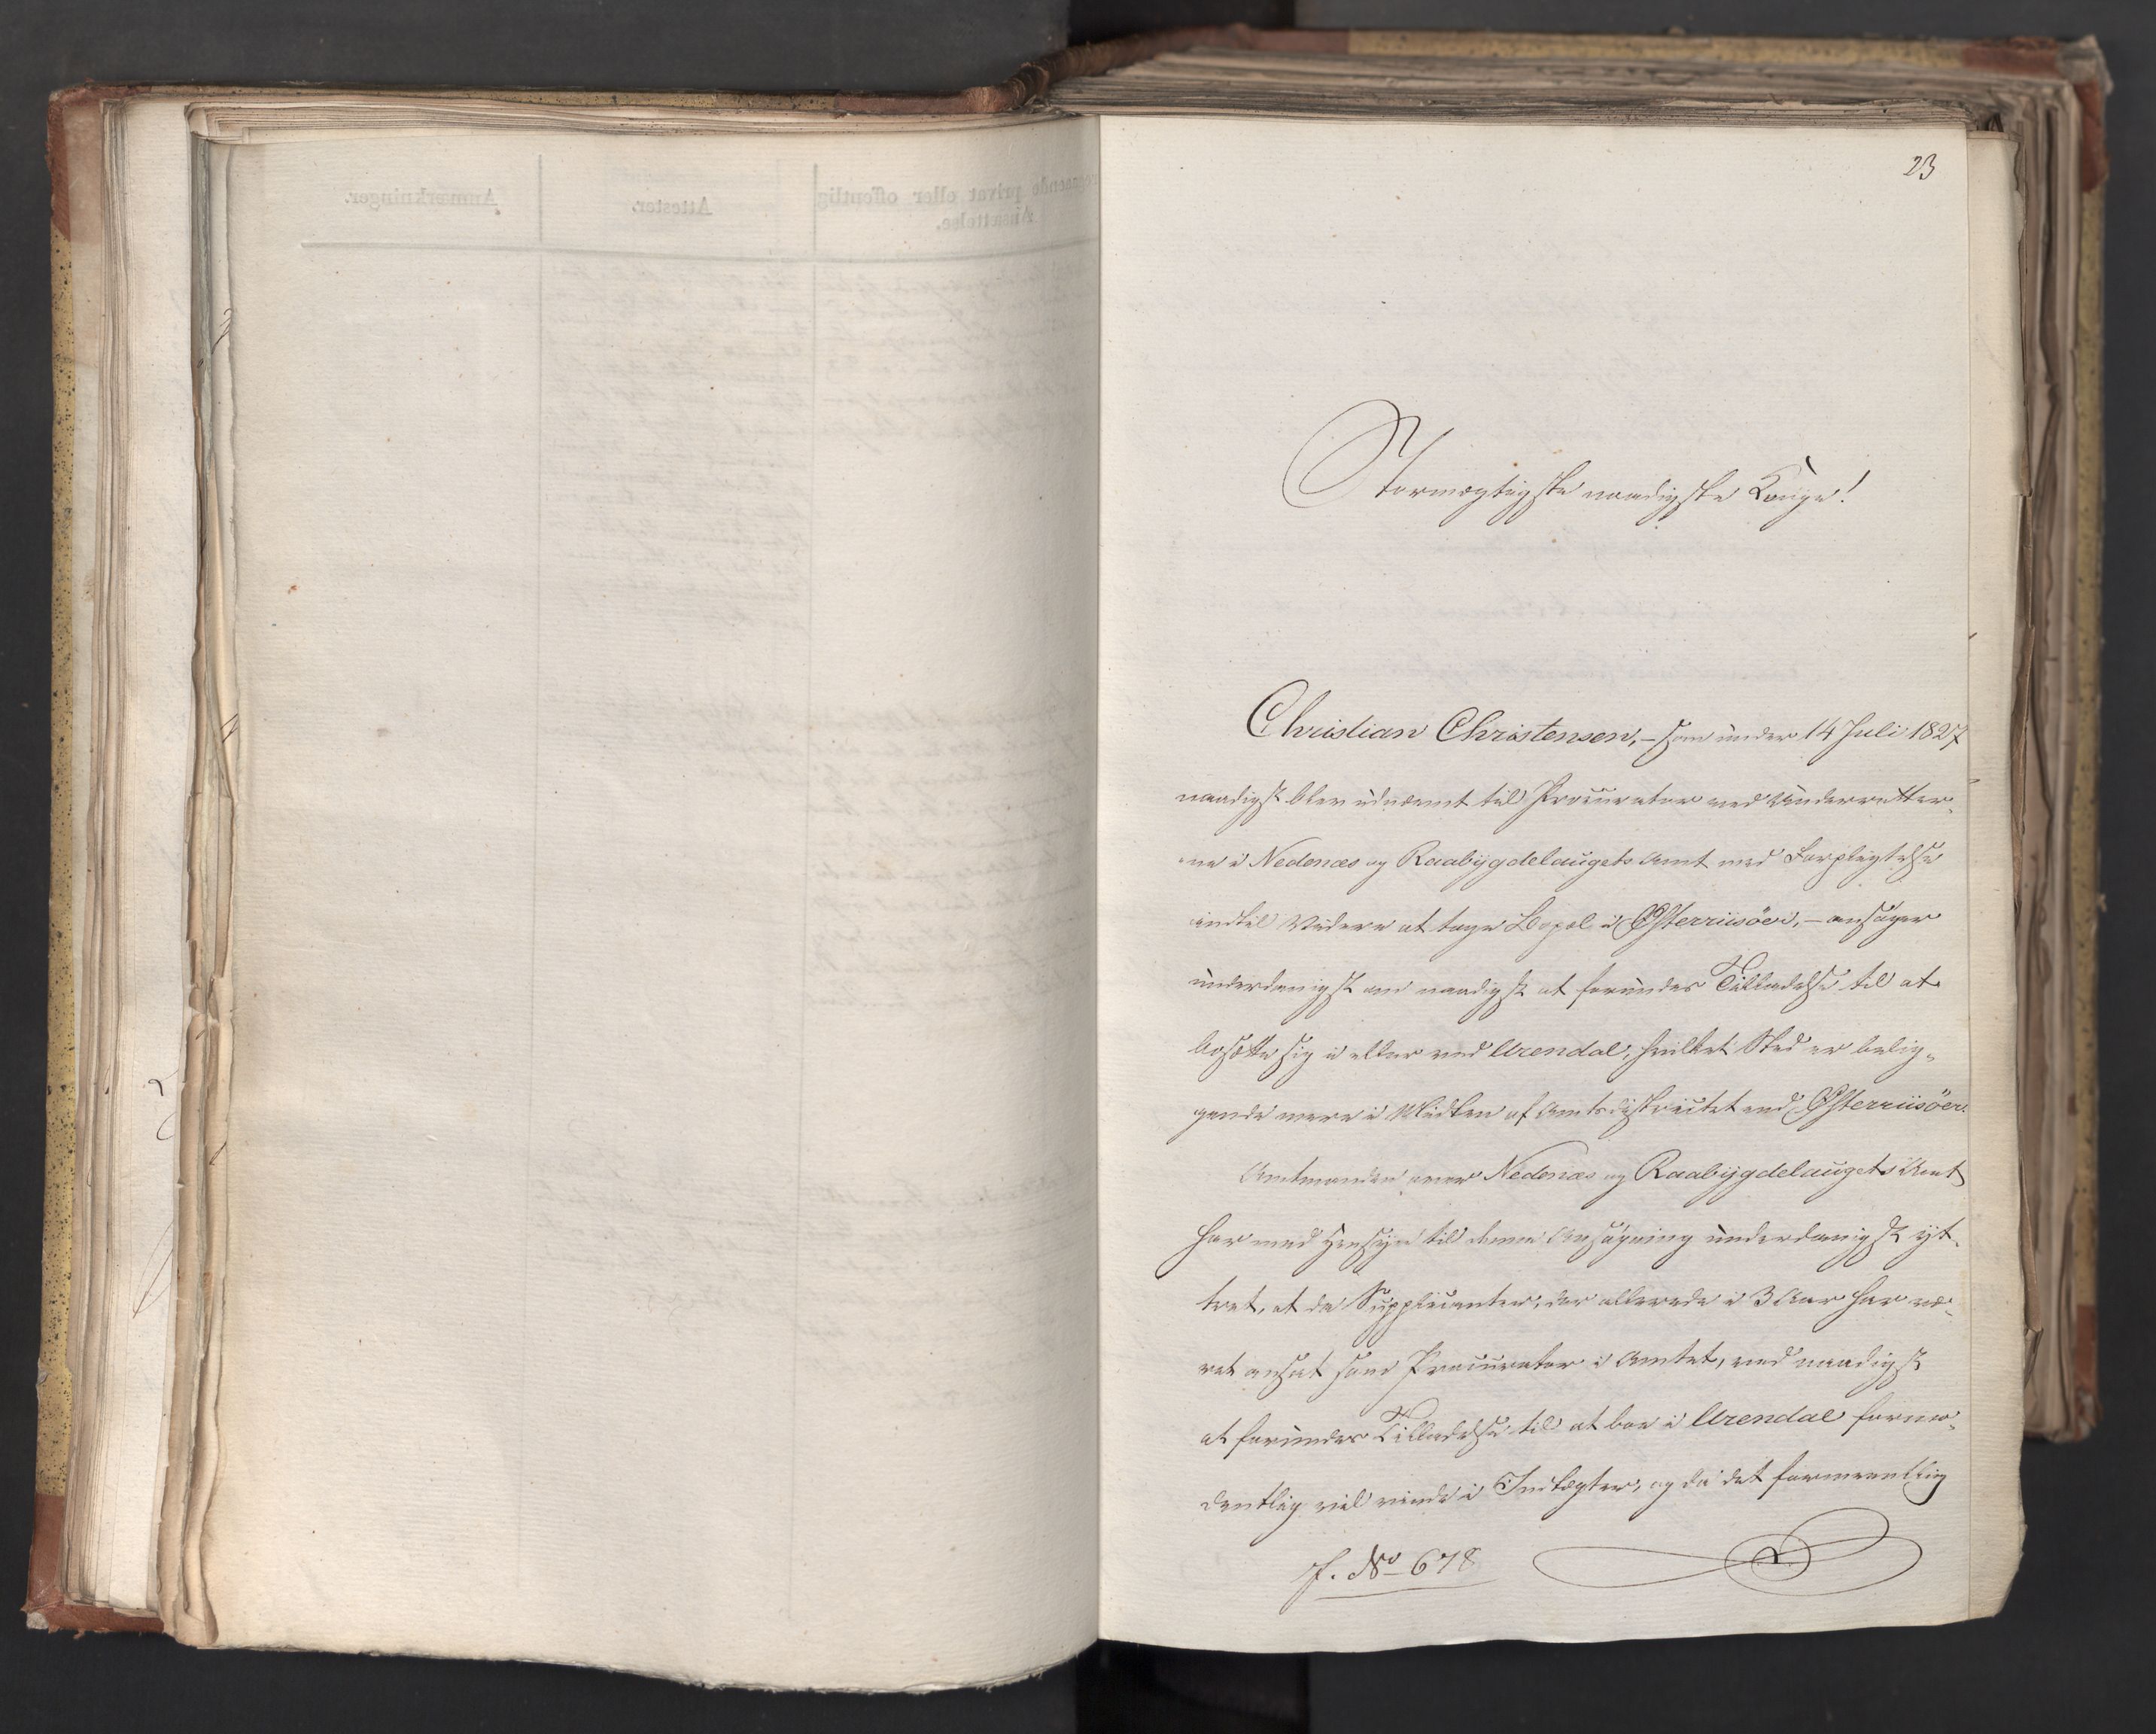 23
Stormægtigste naadigste Konge!
Christian Christensen, – som under 14 Juli 1827
naadigst blev udnævnt til Procurator ved Underretter-
ne i Nedenæs og Raabygdelaugets Amt med Forpligtelse
indtil Videre at tage Bopæl i Østerriisöer, – ansøger
underdanigst om naadigst at forundes Tilladelse til at
bosætte sig i eller ved Arendal, hvilket Sted er belig-
gende mere i Midten af Amtsdistrictet end Østerriisöer.
Amtmanden over Nedenæs og Raabygdelaugets Amt
har med Hensyn til denne Ansøgning underdanigst yt-
tret, at da Supplicanten, der allerede i 3 Aar har væ-
ret ansat som Procurator i Amtet, ved naadigst
at forundes Tilladelse til at boe i Arendal formo-
dentlig vil vinde i Indtægter, og da det formeentlig
J. No 678